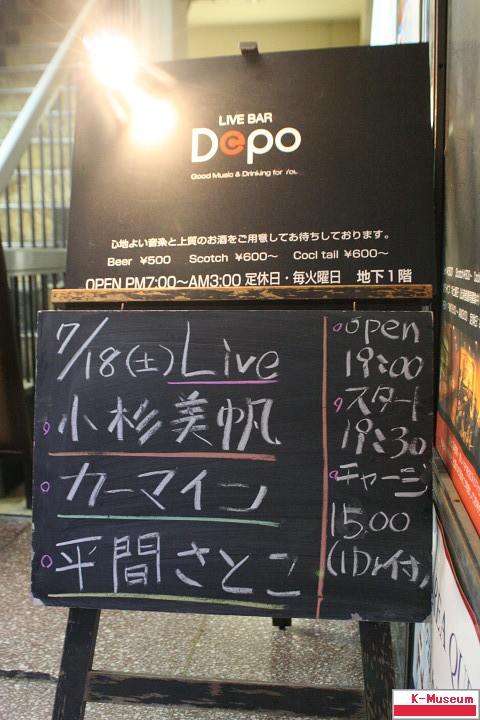 LIVE BAR
Depo
Good Music & Drinking for You
心地よい音楽と上質のお酒をご用意してお待ちしております。
Beer ¥500 Scotch ¥600〜 Coctail ¥600〜
OPEN PM7:00〜AM3:00 定休日・毎火曜日 地下1階
7/18(土) Live
小杉美帆
カーマイン
平間さとこ
open
19:00
スタート
19:30
チャージ
1500
(1Dr付)
K-Museum